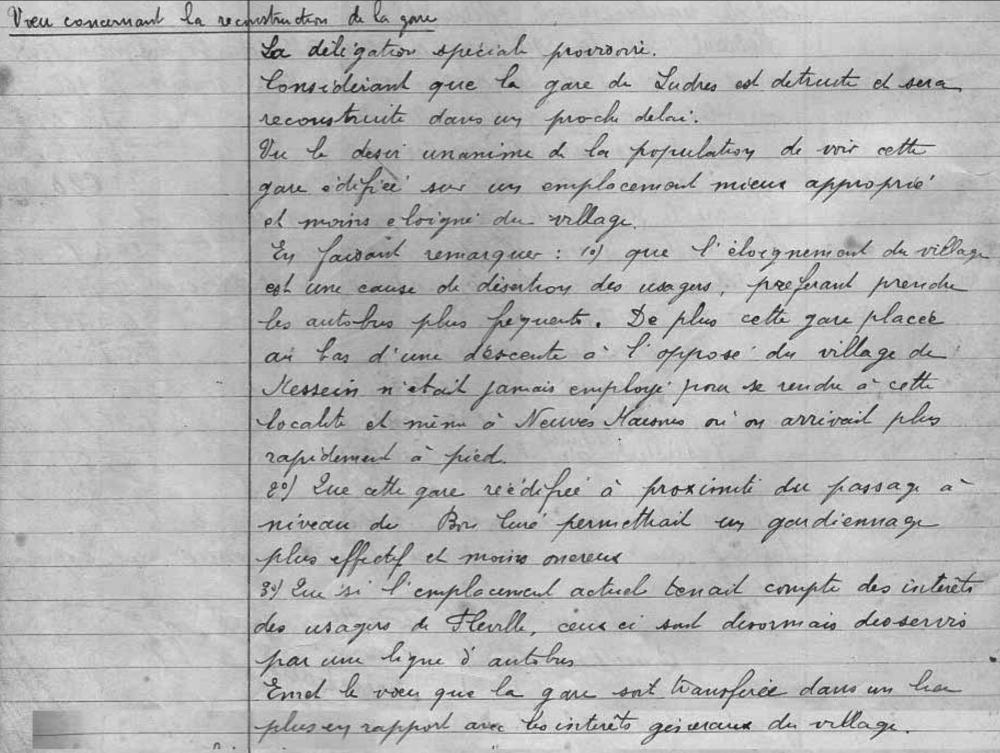 Vœu concernant la reconstruction de la gare
La délégation spéciale provisoire.
Considérant que la gare de Ludres est detruite et sera
reconstruite dans un proche delai.
Vu le desir unanime de la population de voir cette
gare édifiée sur un emplacement mieux approprié
et moins eloigné du village.
En faisant remarquer : 1o) que l'éloignement du village
est une cause de désertion des usagers, préférant prendre
les autobus plus fréquents. De plus cette gare placée
au bas d'une descente à l'opposé du village de
Messein n'était jamais employé pour se rendre à cette
localité et même à Neuves Maisons où on arrivait plus
rapidement à pied.
2o) Que cette gare réédifiée à proximité du passage à
niveau du Bon Curé permettrait un gardiennage
plus effectif et moins onereux
3o) Que si l'emplacement actuel tenait compte des intérêts
des usagers de Fleville, ceux ci sont désormais desservis
par une ligne d'autobus
Emet le vœu que la gare soit transférée dans un lieu
plus en rapport avec les intérêts généraux du village.